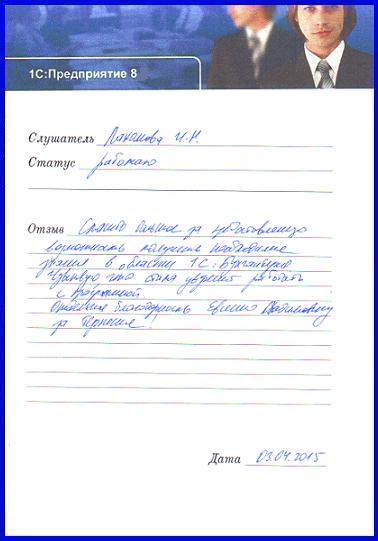 1С:Предприятие 8
Слушатель Пахомова И.Н.
Статус работаю
Отзыв Спасибо большое за предоставленную
возможность получения необходимые
знания в области 1С: Бухгалтерия
Чувствую что стала уверенней работать
с программой.
Отдельная благодарность Евгению
за терпение!
Дата 03.04.2015